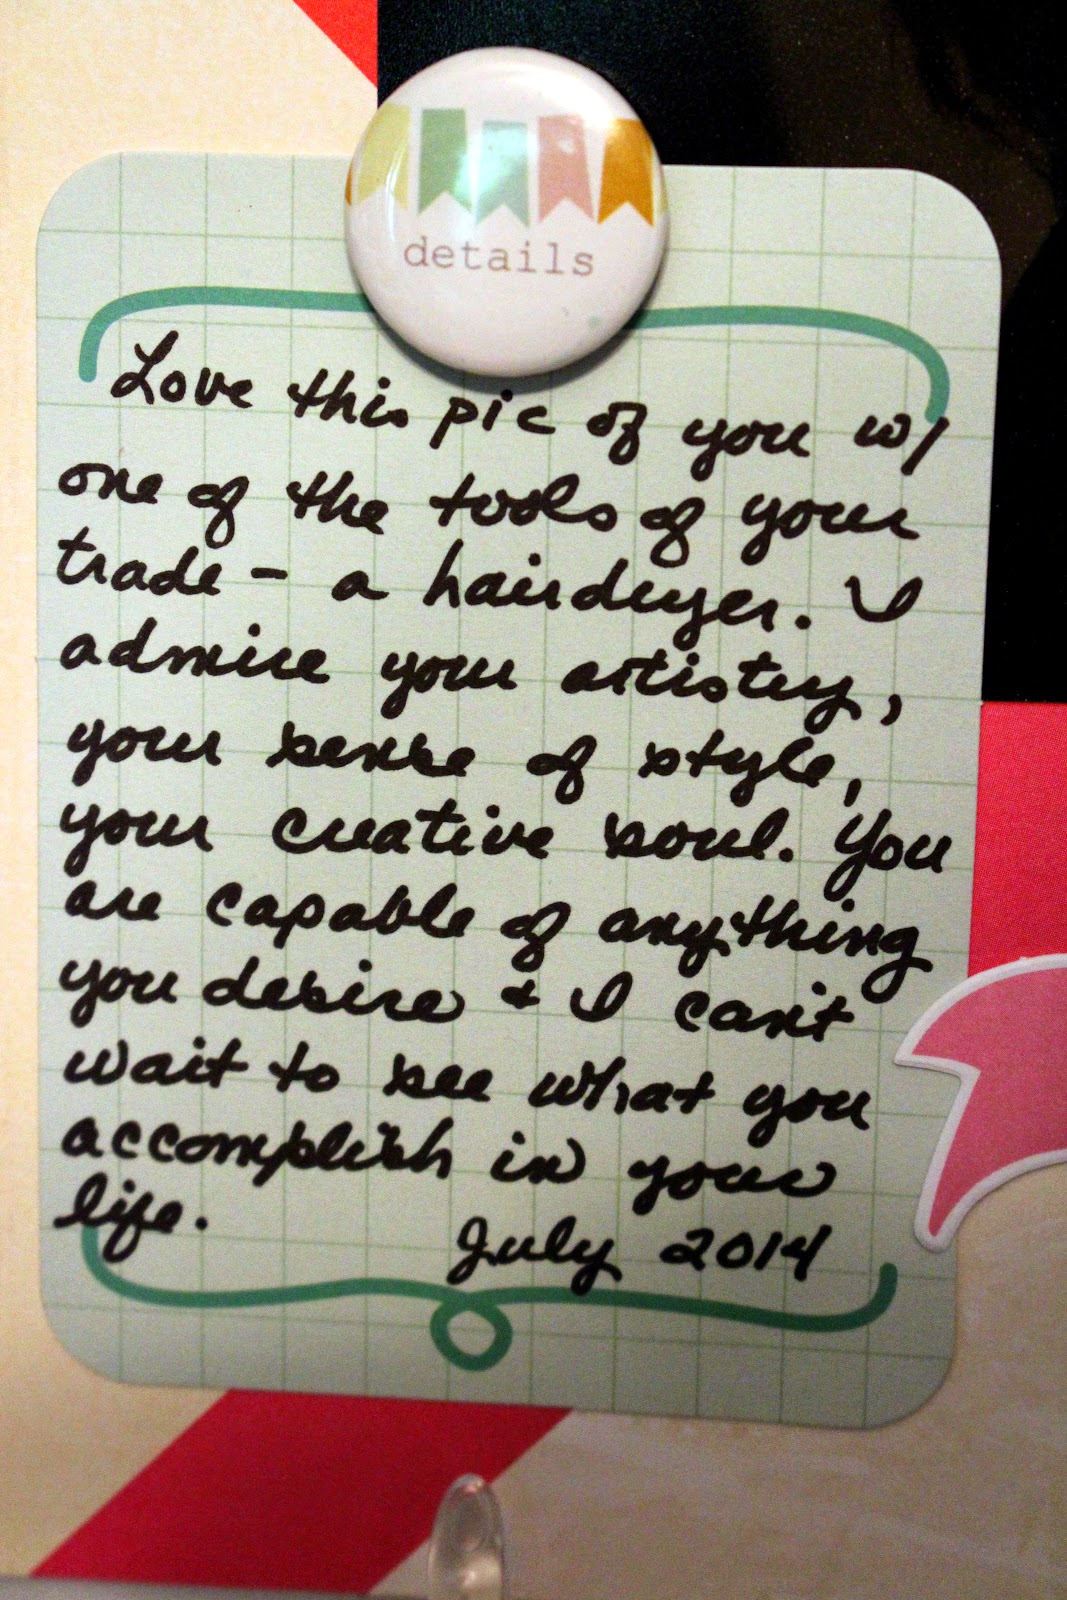 details
Love this pic of you w/
one of the tools of your
trade - a hairdryer. I
admire your artistry,
your sense of style,
your creative soul. You
are capable of anything
you desire & I can't
wait to see what you
accomplish in your
life.
July 2014